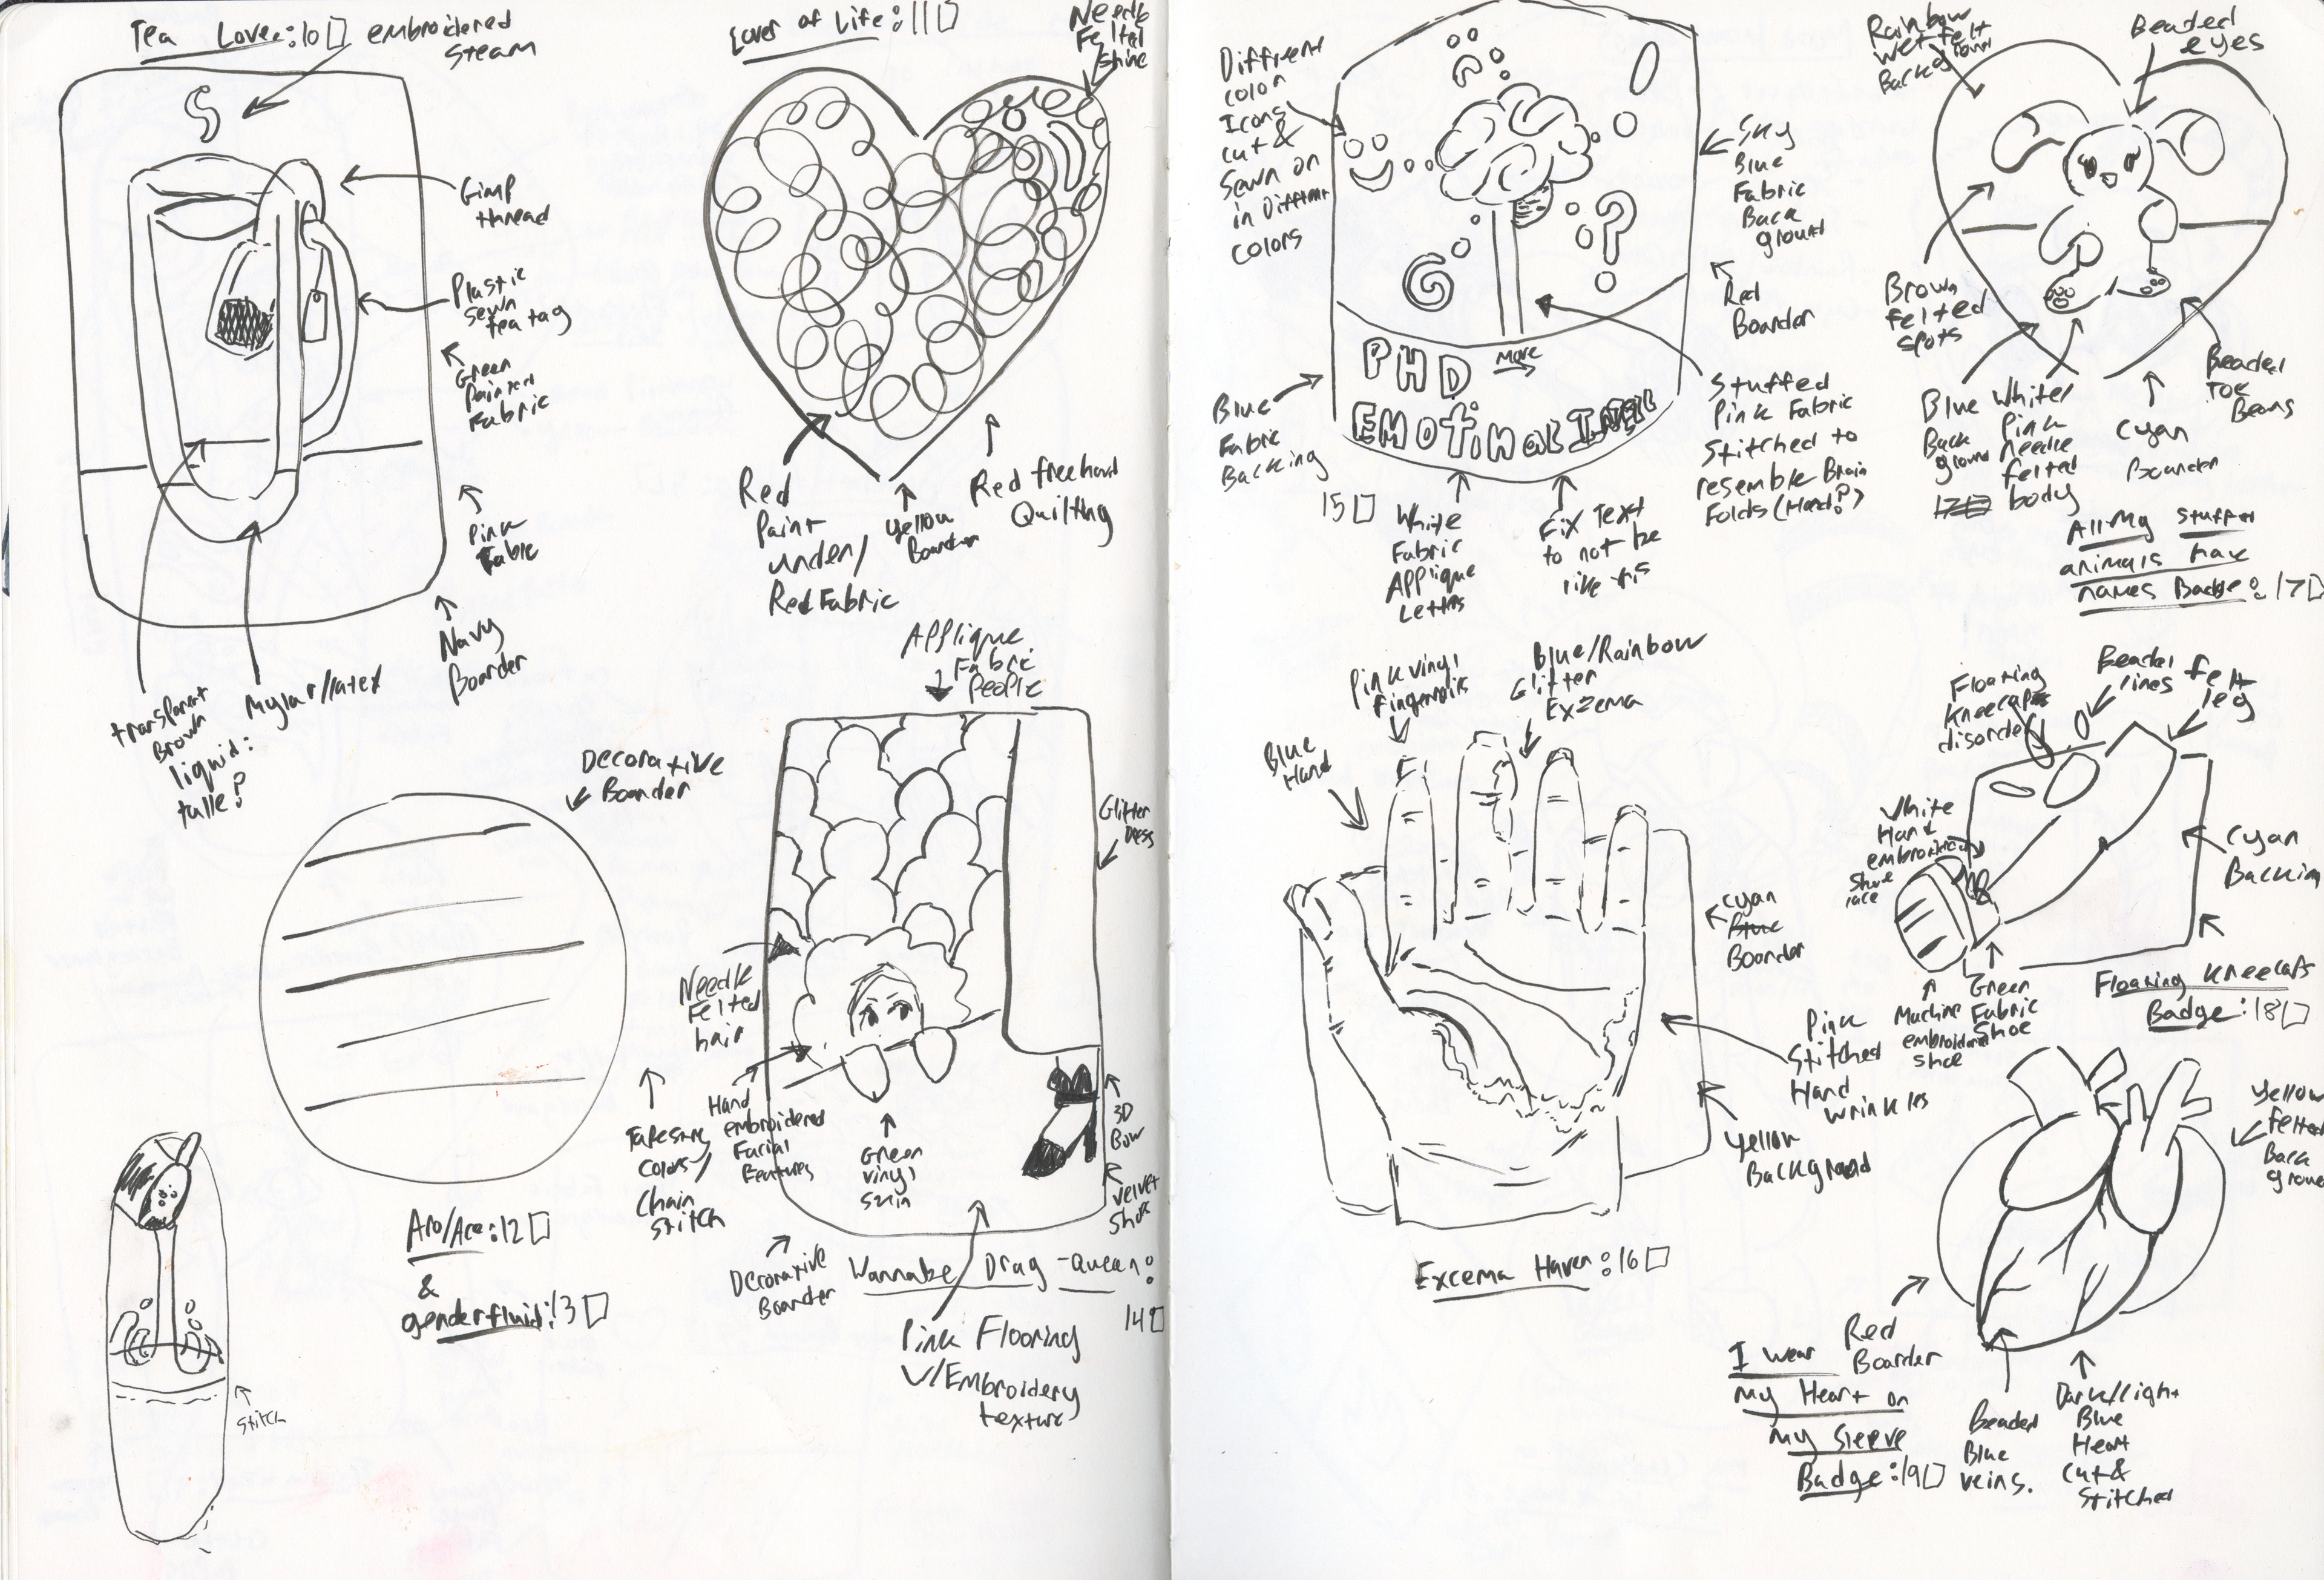 Tea Lover:10
embroidered
steam
Gimp
thread
Plastic
sewn
tea tag
Green
Painted
Fabric
Pink
Fabic
Navy
Boarder
transparat
Brown
liquid:
tulle?
Mylar/latex
Lover of Life:11
Needle
Felted
shine
Red
Paint
under/
Red Fabric
Yellow
Boarder
Red freehand
Quilting
Decorative
Boarder
Take song
colors/
Chain
Stitch
Aro/Ace:12
&
genderfluid:13
stitch
Applique
Fabric
People
Glitter
Dress
Needle
Felted
hair
Hand
embroidered
Facial
Features
Green
vinyl
skin
3D
Bow
velvet
shoe
Decorative
Boarder
Wannabe Drag-Queen:
14
Pink Flooring
W/Embroidery
texture
Different
color
Icons
cut &
sewn on
in Different
colors
Sky
Blue
Fabric
Back
ground
Red
Boarder
PHD
more
EMotinal Intell
Blue
Fabric
Backing
15
White
Fabric
Applique
Letters
Fix Text
to not be
like this
Stuffed
Pink Fabric
Stitched to
resemble Brain
Folds (Hard?)
Rainbow
wet felt
Background
Beaded
eyes
Brown
felted
spots
Blue
Back
ground
White/
Pink
needle
felted
body
Cyan
Boarder
Beaded
Toe
Beans
All My Stuffed
animals have
names Badge:17
Pink vinyl
fingernails
Blue/Rainbow
Glitter
Exzema
Blue
Hand
Cyan
Blue
Boarder
Pink
Stitched
Hand
wrinkles
Yellow
Background
Excema Haven:16
Floating
Kneecaps
disorder
Beaded
lines
Felt
leg
White
Hand
embroidery
shoe
lace
Cyan
Backing
Machine
embroidered
shoe
Green
Fabric
Shoe
Floating Kneecaps
Badge:18
Yellow
felted
Back
ground
Red
Boarder
I wear
my Heart on
my Sleeve
Badge:19
Beaded
Blue
veins.
Dark/light
Blue
Heart
cut &
Stitched